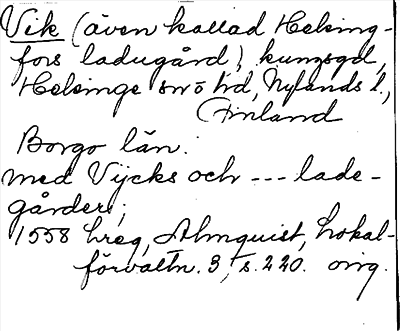 Vik (även kallad Helsing-
fors ladugård), kungsgd,
Helsinge sn o hd, Nylands l.,
Finland
Borgo län.
med Vijcks och --- lade-
gårder;
1558 hreg, Almquist, Lokal-
förvaltn. 3, s. 220. orig.